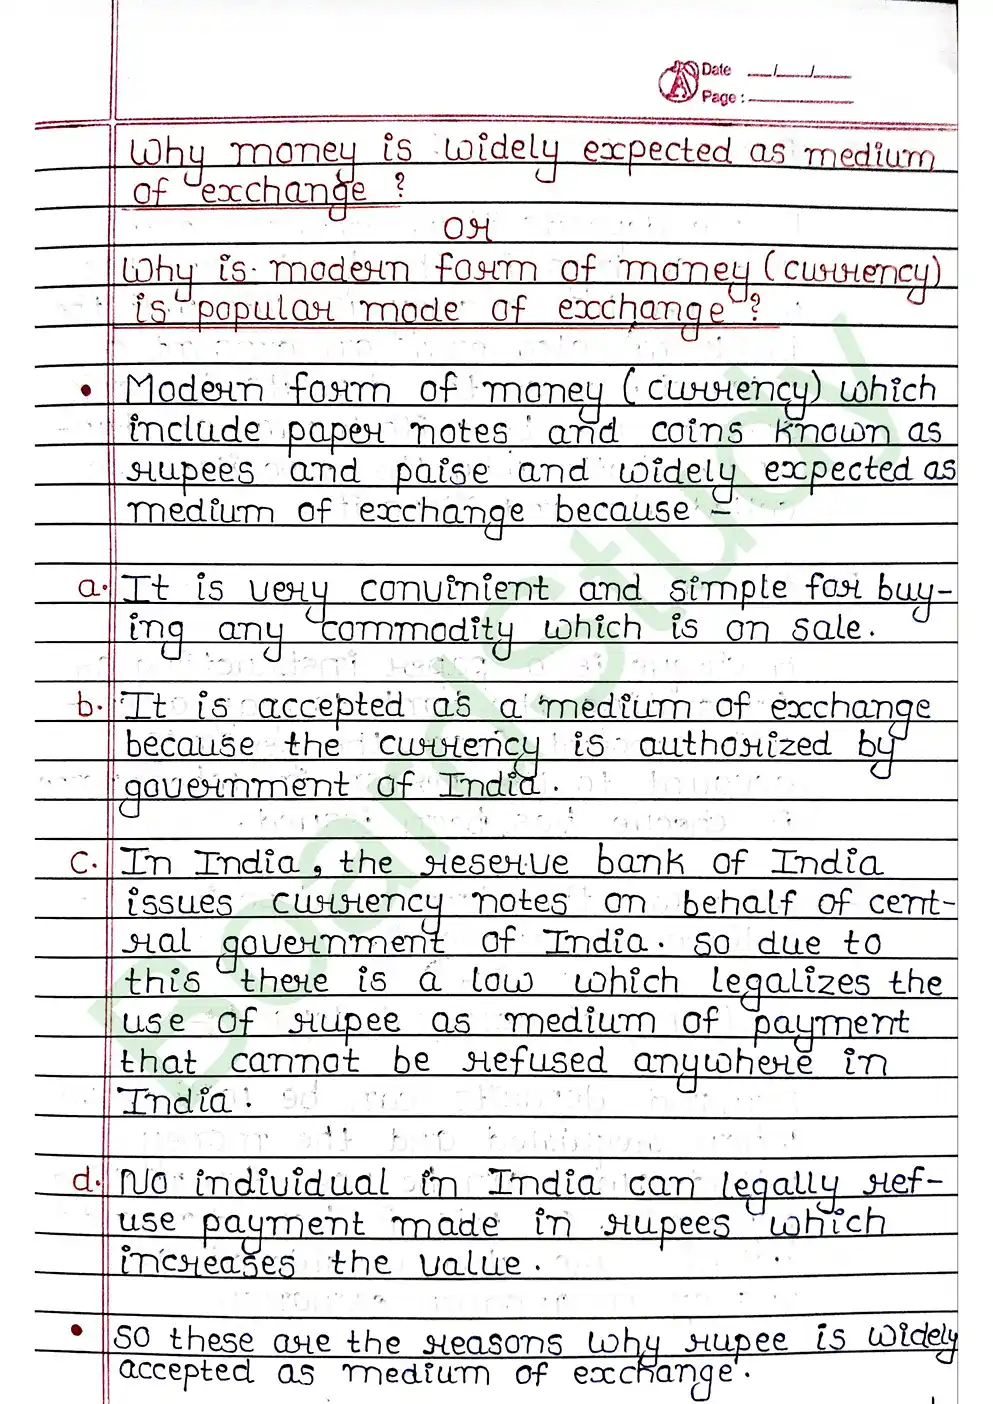 Date __/__/__
Page : ________
Why money is widely expected as medium
of exchange ?
OR
Why is modern form of money (currency)
is popular mode of exchange ?
• Modern form of money (currency) which
include paper notes and coins known as
rupees and paise and widely expected as
medium of exchange because –
a. It is very convinient and simple for buy-
ing any commodity which is on sale.
b. It is accepted as a medium of exchange
because the currency is authorized by
government of India.
c. In India, the reserve bank of India
issues currency notes on behalf of cent-
ral government of India. So due to
this there is a low which legalizes the
use of rupee as medium of payment
that cannot be refused anywhere in
India.
d. No individual in India can legally ref-
use payment made in rupees which
increases the value.
• So these are the reasons why rupee is widely
accepted as medium of exchange.
BoardStudy